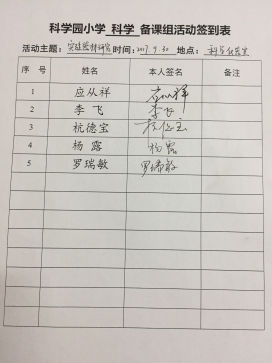 科学园小学 科学 备课组活动签到表
活动主题：实验器材研究 时间：2017.9.30 地点：
序 号 姓名 本人签名 备注
1 应从祥 应从祥
2 李 飞 李飞
3 杭德宝 杭德宝
4 杨 露 杨露
5 罗瑞敏 罗瑞敏